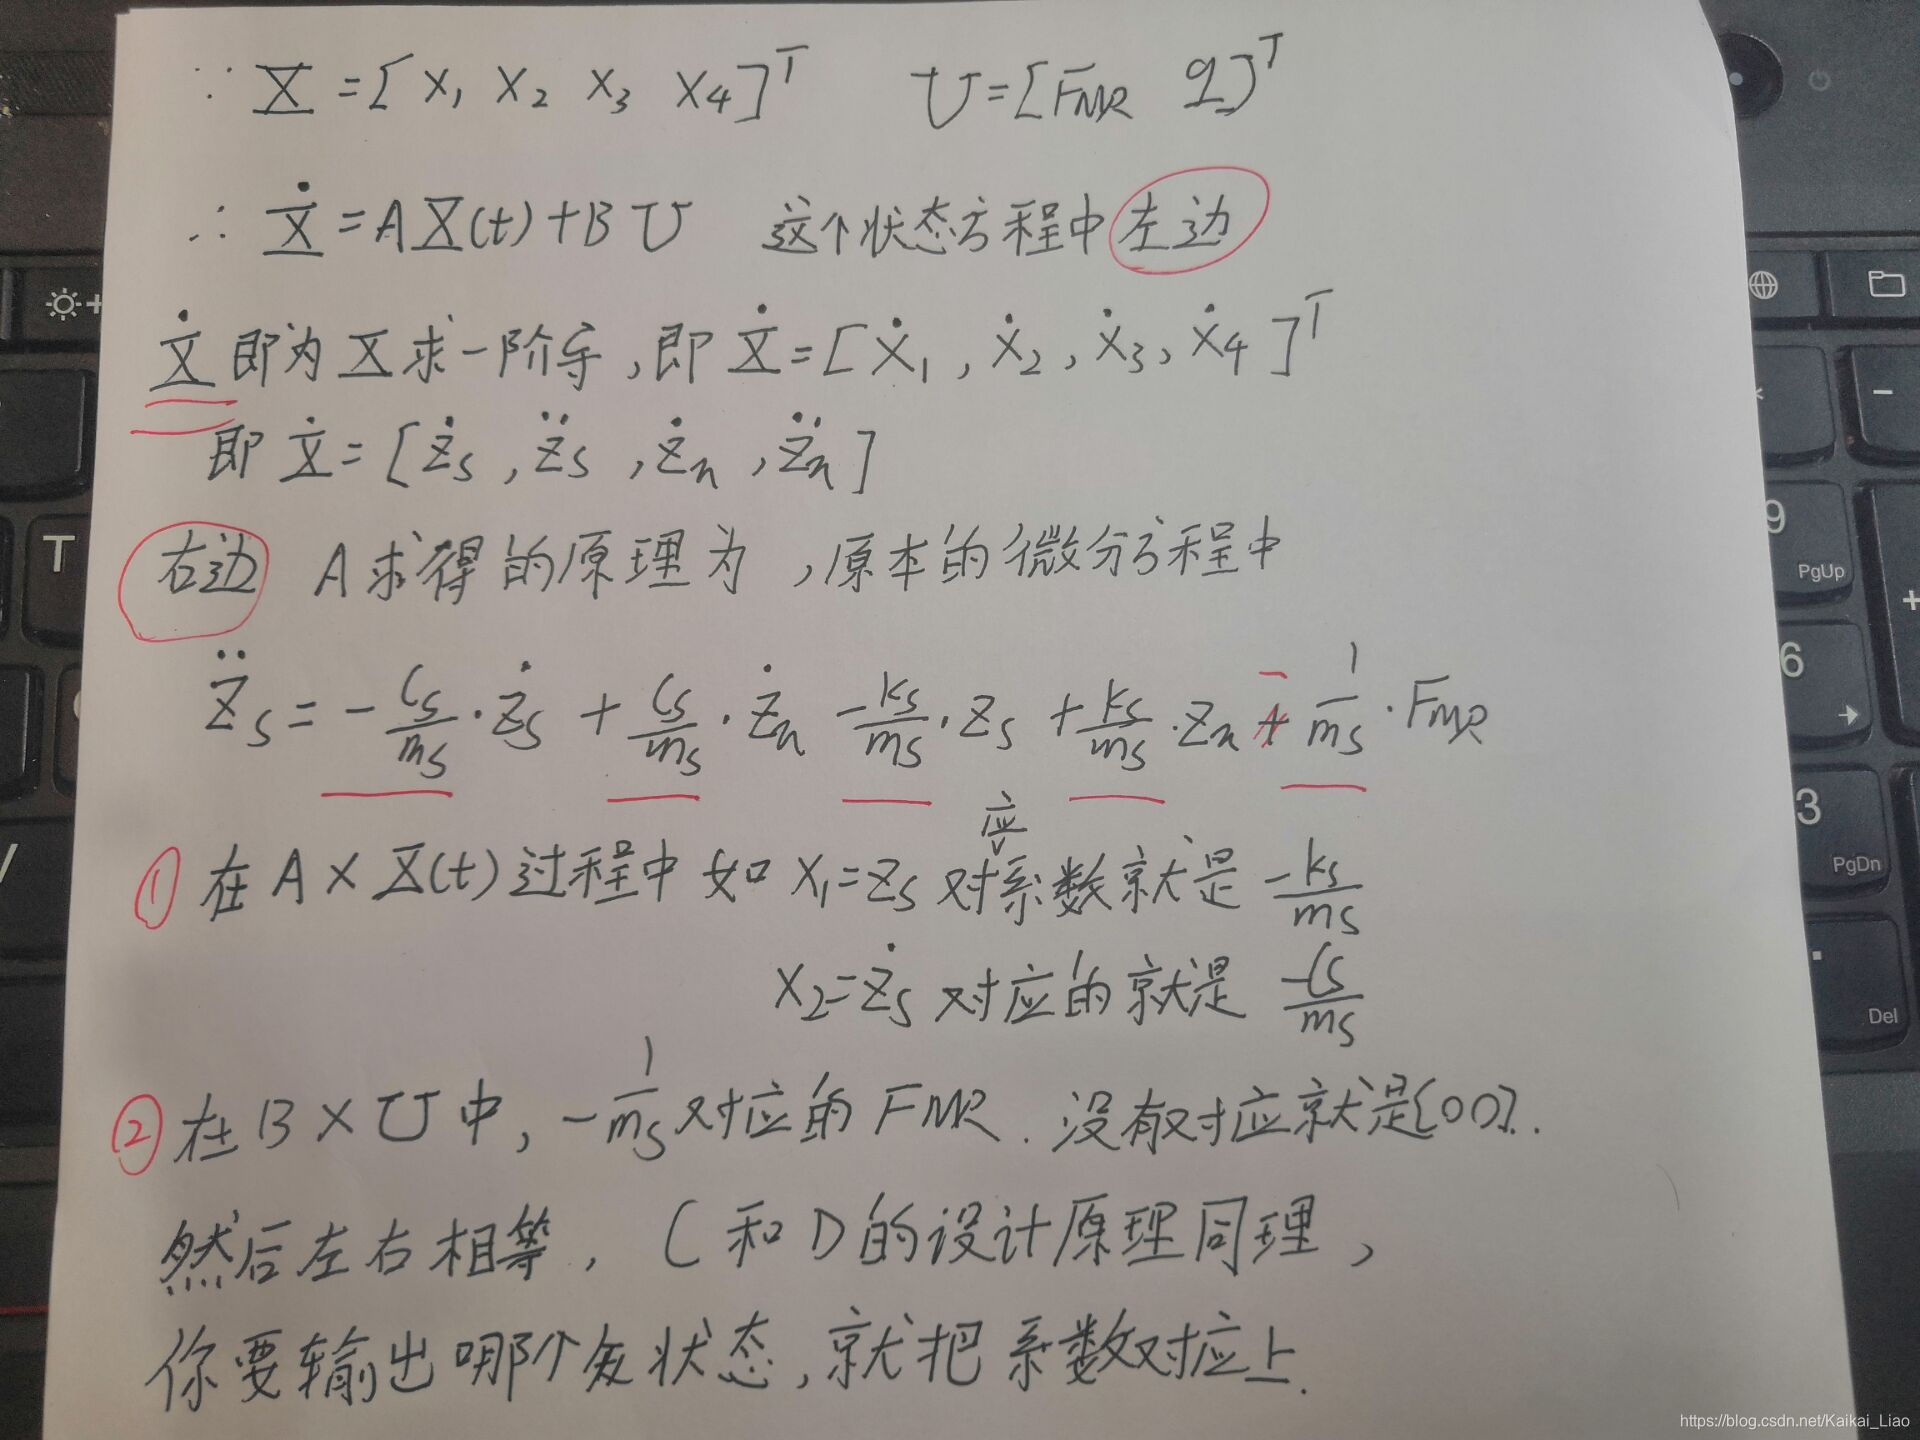 ∵ X = [ x₁ x₂ x₃ x₄ ]ᵀ U = [F_MR q]ᵀ
∴ Ẋ = A X(t) + B U 这个状态方程中左边
Ẋ 即为 X 求一阶导,即 Ẋ = [ ẋ₁ , ẋ₂ , ẋ₃ , ẋ₄ ]ᵀ
即 Ẋ = [ żₛ , z̈ₛ , żₙ , z̈ₙ ]
右边 A求得的原理为,原本的微分方程中
z̈ₛ = - Cₛ/mₛ · żₛ + Cₛ/mₛ · żₙ - kₛ/mₛ · zₛ + kₛ/mₛ · zₙ - 1/mₛ · F_MR
① 在 A × X(t) 过程中 如 x₁ = zₛ 对应系数就是 - kₛ/mₛ
x₂ = żₛ 对应的就是 -Cₛ/mₛ
② 在 B × U 中, - 1/mₛ 对应的 F_MR . 没有对应就是[0 0].
然后左右相等, C 和 D 的设计原理同理,
你要输出哪个状态,就把系数对应上.
+
T
PgUp
9
-
6
+
3
PgDn
.
Del
https://blog.csdn.net/Kaikai_Liao